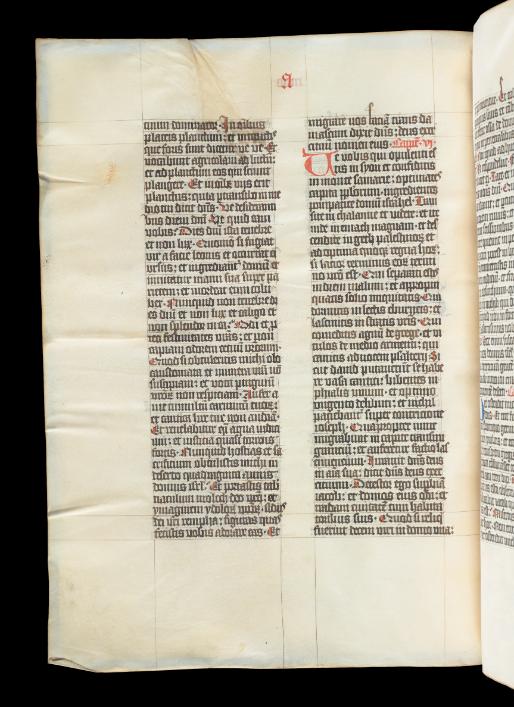 A
tium dominator. In omnibus
plateis planctum: et in cunctis
que foris sunt dicetur ve ve. Et
vocabunt agricolam ad luctum:
et ad planctum eos qui sciunt
plangere. Et in omnibus vijs erit
planctus: quia pertransibo in me
dio tui dicit dns. Ve desideranti
bus diem dni. Ve quid eam
vobis: Dies dni ista tenebre
et non lux. Quomo si fugiat
vir a facie leonis et occurrat ei
ursus: et ingrediatur domum et
innitatur manu sua super pa
rietem: et mordeat eum colu
ber. Nunquid non tenebre di
es dni et non lux et caligo et
non splendor in ea: Odi et p
ieci festivitates vras: et non
capiam odorem cetuum vrorum.
Quod si obtuleritis michi olo
caustomata et munera vra no
suscipiam: et vota pinguium
vrorum non respiciam. Aufer a
me tumultum carminum tuorum:
et cantica lire tue non audiam.
Et revelabitur quasi aqua iudiciu
um: et iusticia quasi torrens
fortis. Nunquid hostias et sa
crificium obtulistis michi in
deserto quadraginta annis
domus isrl. Et portastis tab
naculum moloch deo vro: et
ymaginem ydolorum vrorum. sidus
dei vri rempha: figuras quas
fecistis vobis adorare eas. Et
migrare vos faciam trans da
mascum dixit dns: deus exer
cituum nomen eius. Capm. vi.
Ve vobis qui opulenti es
tis in syon et confiditis
in monte samarie: optimates
capita populorum. ingredientes
pompatice domum israhel. Tran
site in chalanne et videte: et ite
inde in emath magnam: et des
cendite in geth palestinorum et
ad optima queque regna hor:
si latior terminus eorum termi
no vro est. Qui separati estis
in diem malum: et appropin
quatis solio iniquitatis. Qui
dormitis in lectis eburneis: et
lascivitis in stratis vris. Qui
comeditis agnum de grege: et vi
tulos de medio armenti: qui
canitis ad vocem psalterij. Si
cut david putaverunt se habe
re vasa cantici: bibentes in
phialis vinum: et optimo
unguento delibuti: et nichil
paciebantur super contricione
ioseph. Quapropter nunc
migrabunt in capite transmi
grantium: et auferetur factio las
civientium. Iuravit dns deus
in aia sua: dicit dns deus exer
cituum. Detestor ego superbiam
iacob: et domos eius odi: et
tradam civitatem cum habita
toribus suis. Quod si reliq
fuerint decem viri in domo una: